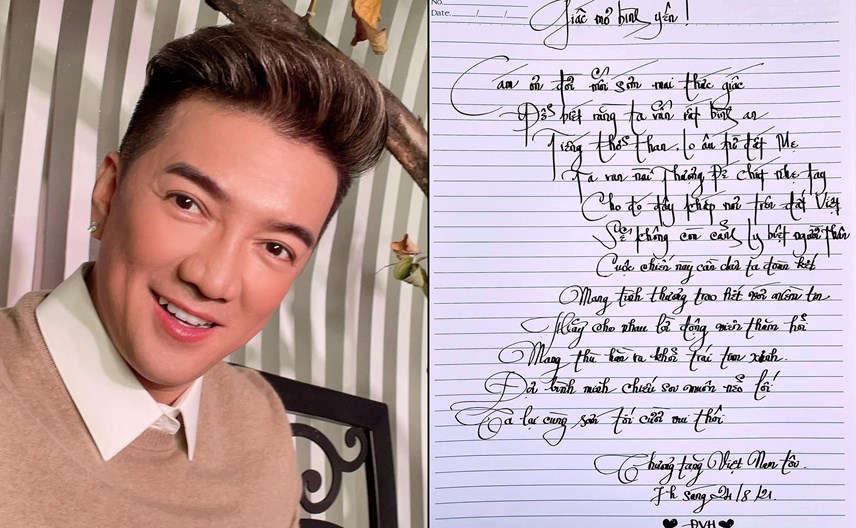 No.
Date. / /
Giấc mơ bình yên!
Cảm ơn đời mỗi sớm mai thức giấc
Để biết rằng ta vẫn rất bình an
Tiếng thở than, lo âu từ đất Mẹ
Ta van nài Thượng Đế chút nhẹ tay
Cho đó đây khắp nơi trên đất Việt
Sẽ không còn cảnh ly biệt người thân
Cuộc chiến này cần chữ ta đoàn kết
Mang tình thương trao hết với niềm tin
Hãy cho nhau lời động viên thăm hỏi
Mang thù hằn ra khỏi trái tim xanh.
Đợi bình minh chiếu soi muôn nẻo lối
Ta lại cùng sớm tối cười vui thôi
Thương tặng Việt Nam tôi.
7h sáng 24/8/21.
ĐVH